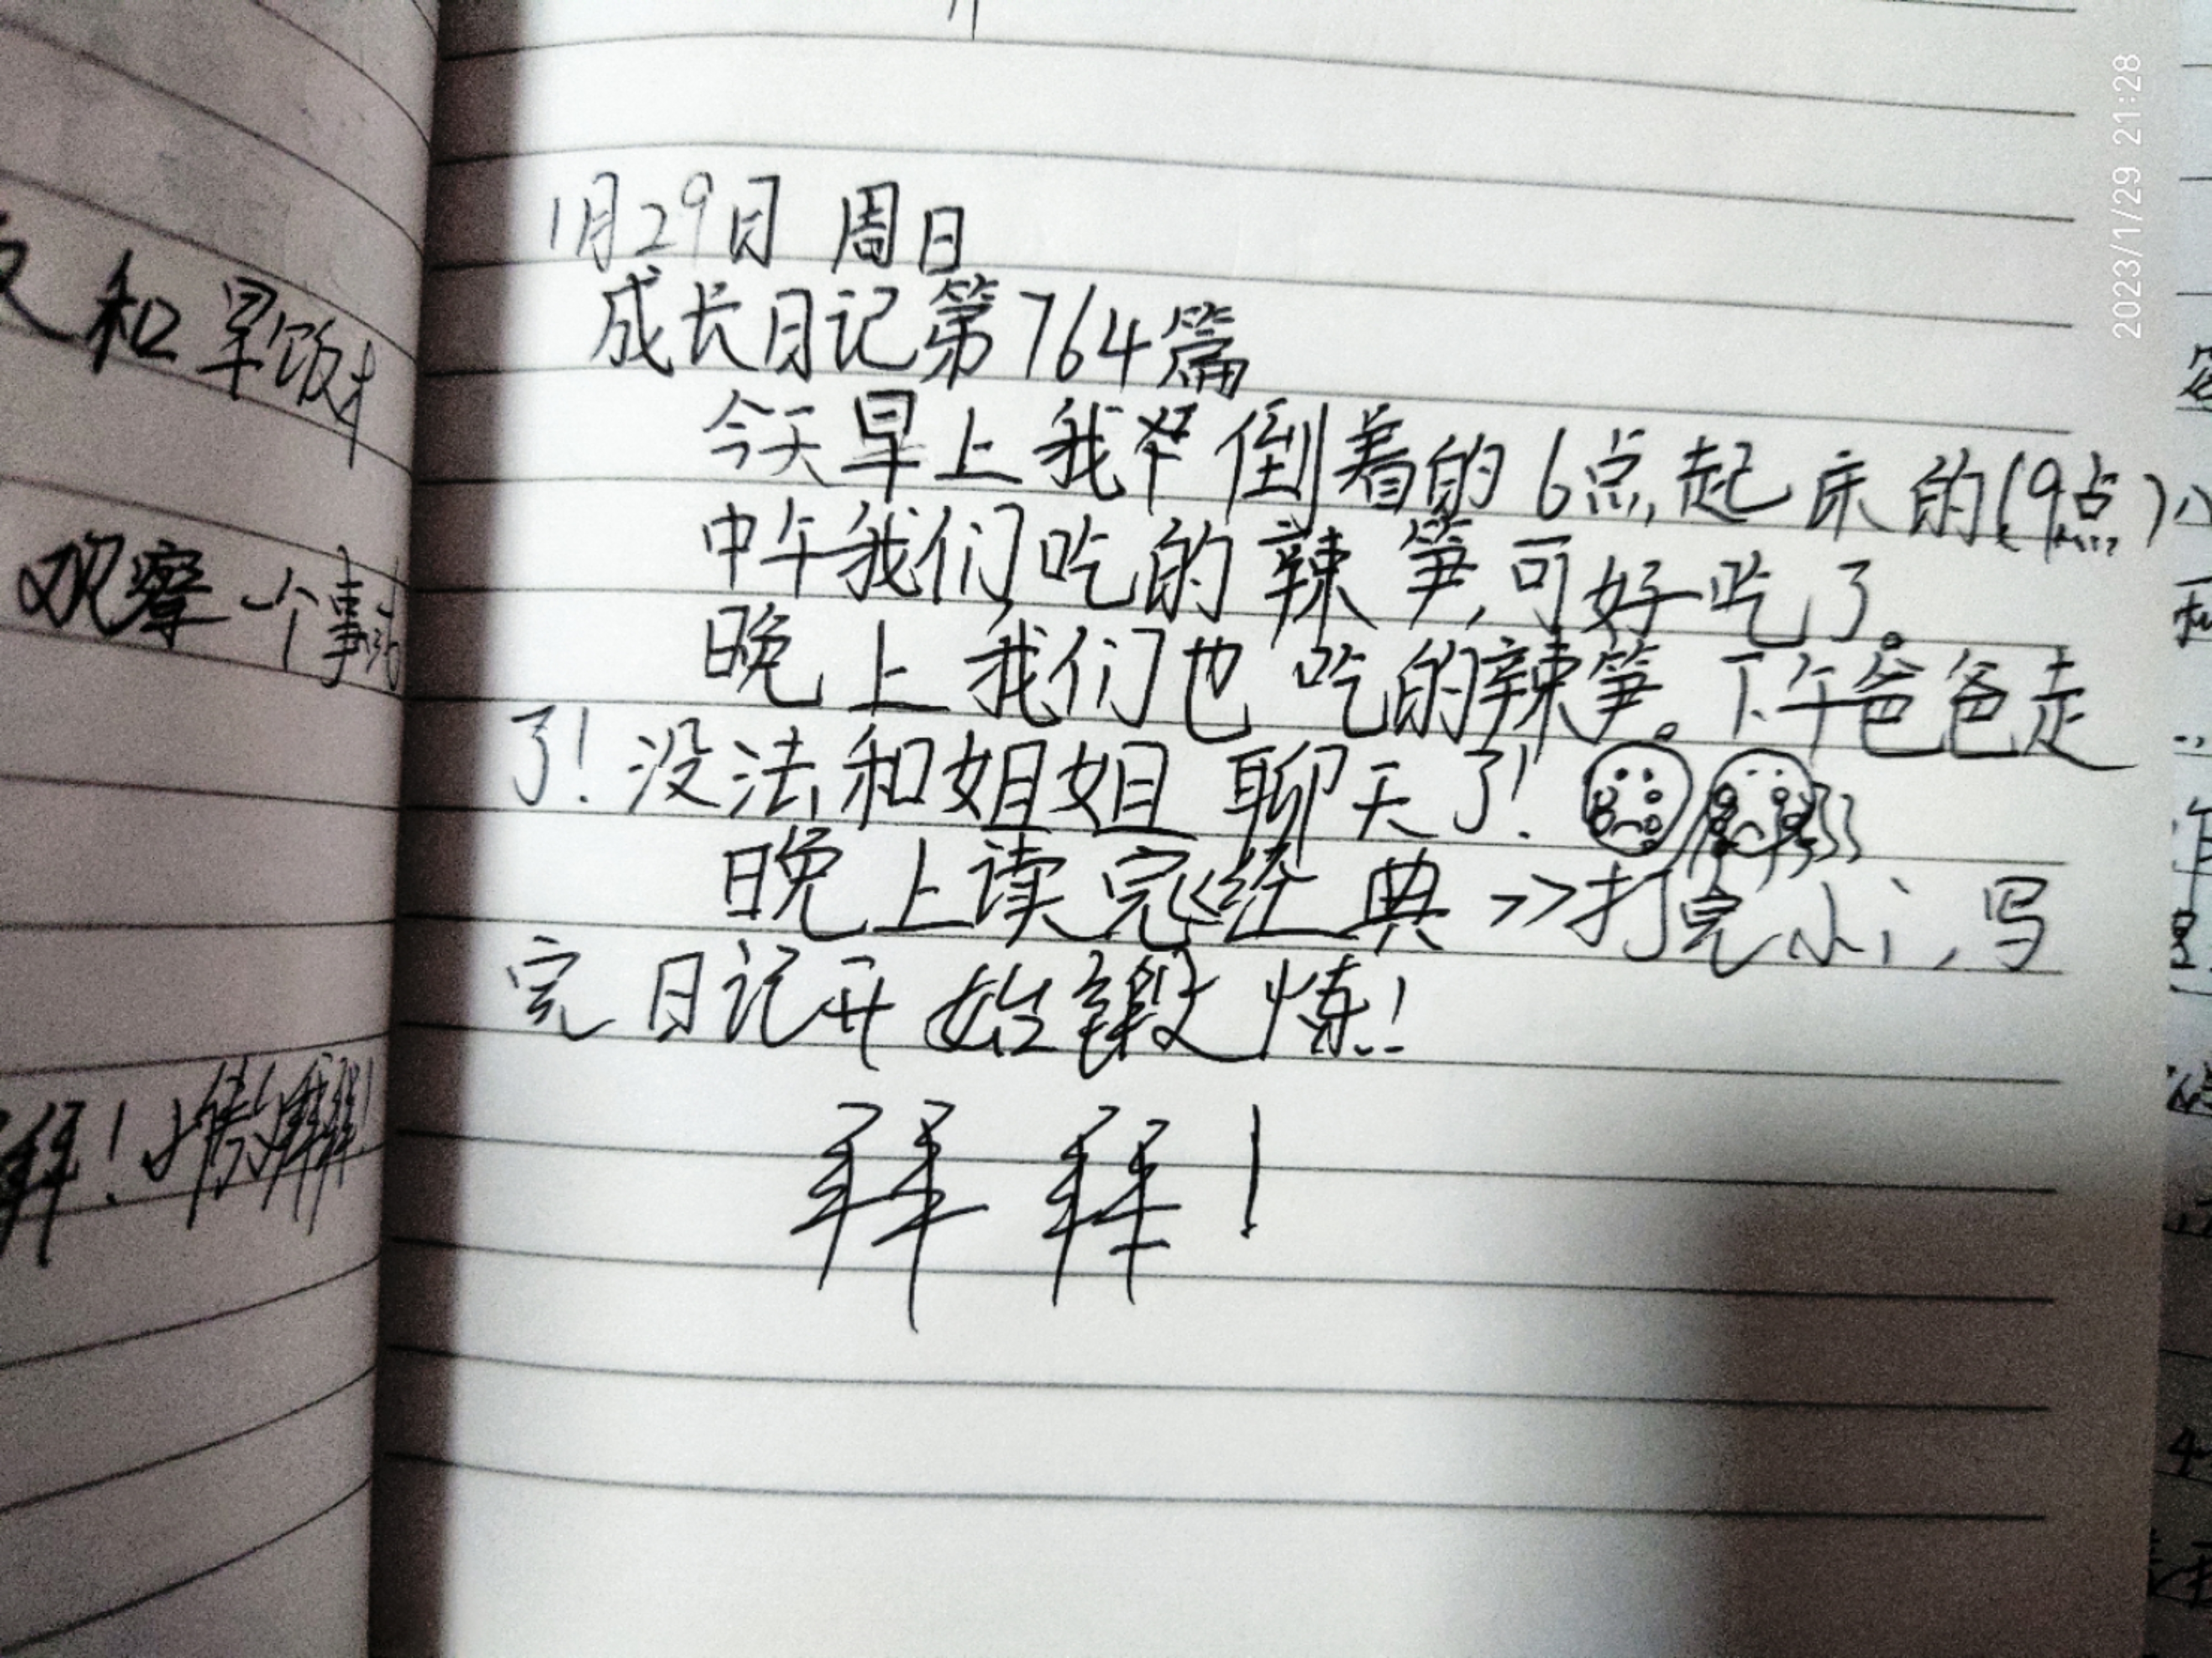 1月29日 周日
成长日记第764篇
今天早上我 倒着的6点起床的(9点)
中午我们吃的辣笋,可好吃了。
晚上我们也吃的辣笋。下午爸爸走
了!没法和姐姐聊天了!
晚上读完《经典》打完小讠,写
完日记开始锻炼!
拜拜!
和早饭才
观察一个事
拜!
2023/1/29 21:28